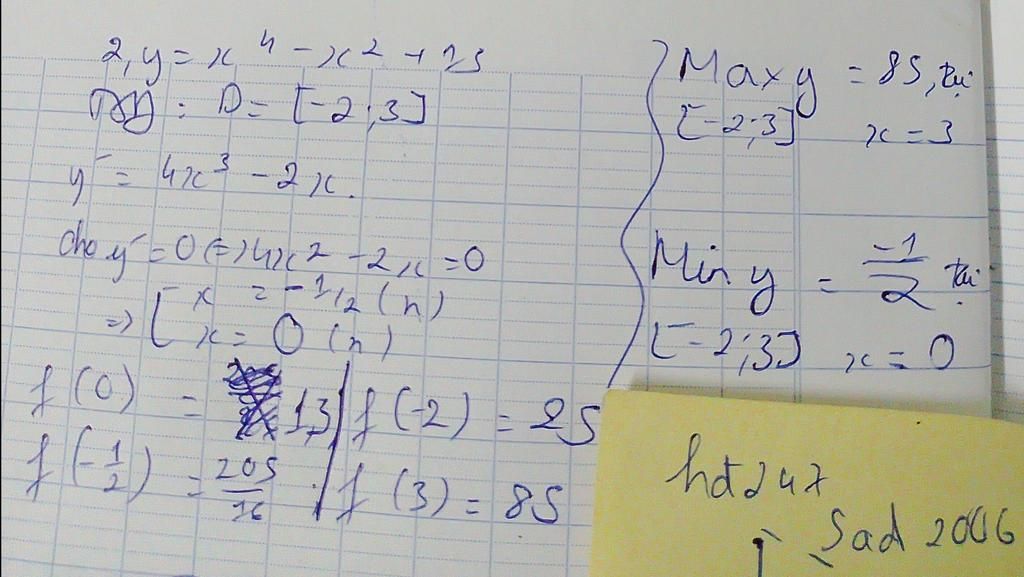 2, y = x⁴ - x² + 13
TXĐ : D = [-2;3]
y' = 4x³ - 2x.
cho y' = 0 (=> 4x² - 2x = 0
=> [ x = -1/2 (n)
x = 0 (n)
f(0) = 13 | f(-2) = 25
f(-1/2) = 205/16 . | f(3) = 85
Max y = 85, tại
[-2;3] x = 3
Min y = -1/2 tại
[-2;3] x = 0
hd247
Sad 2006